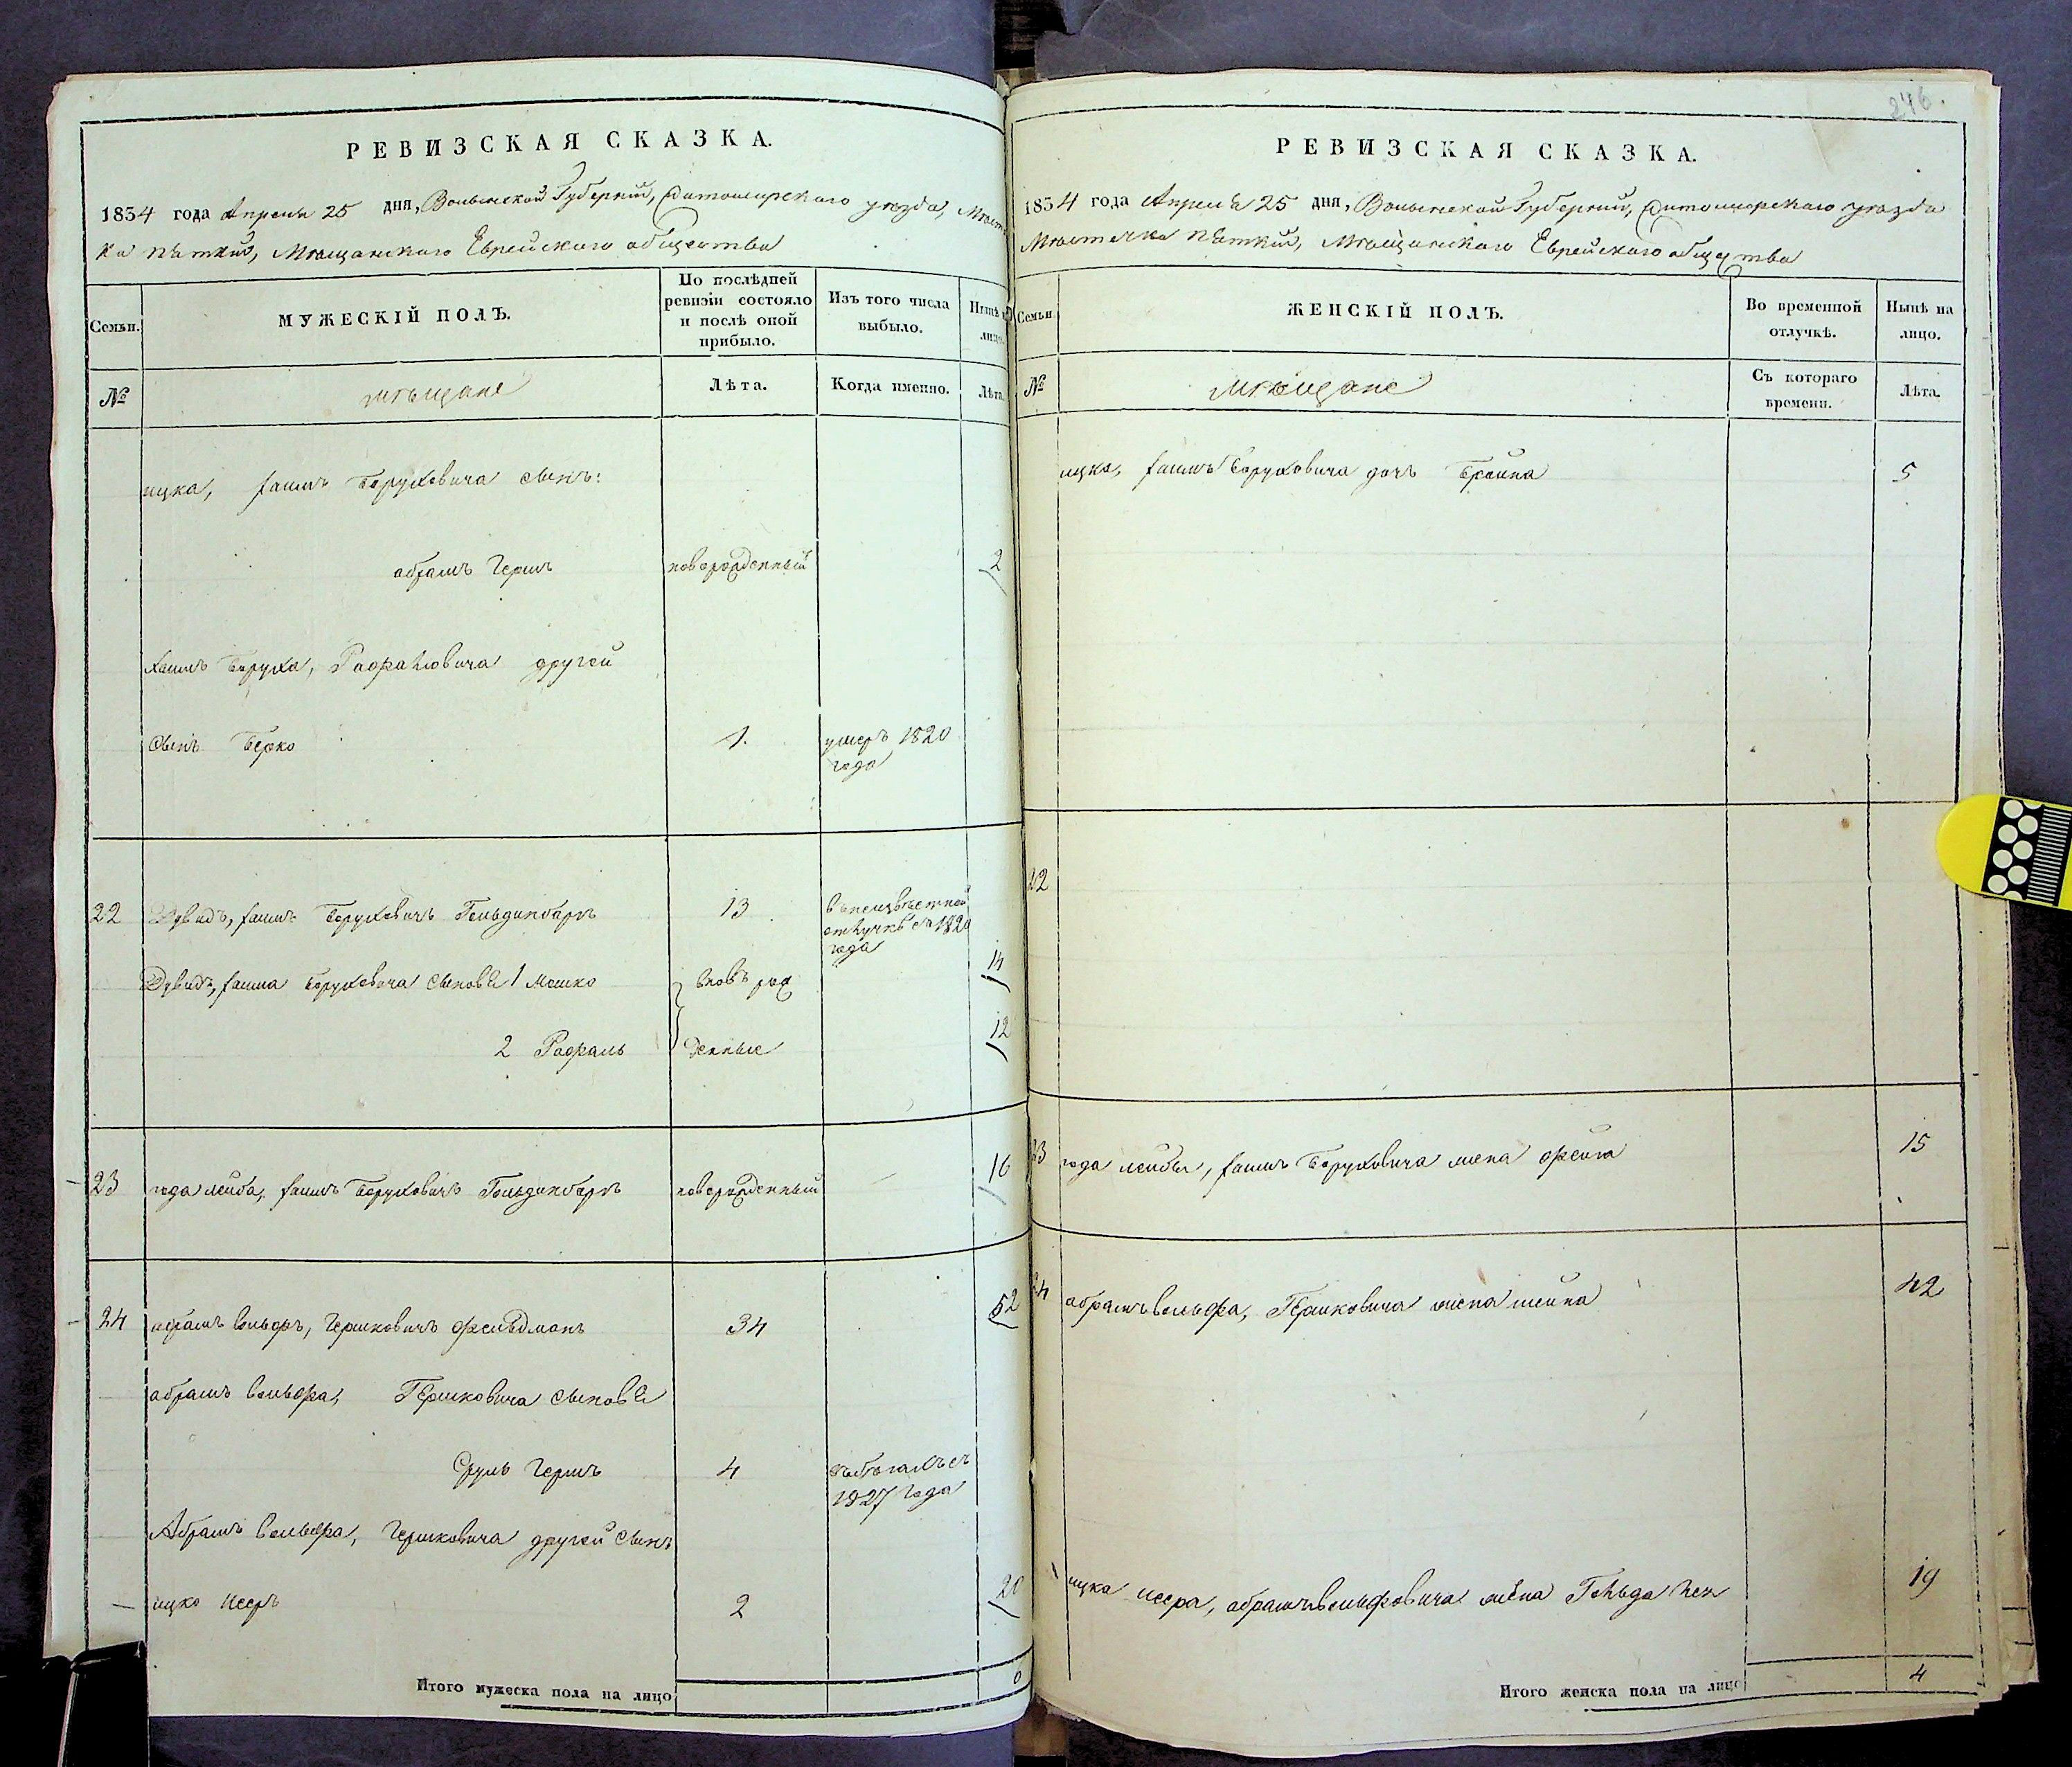 РЕВИЗСКАЯ СКАЗКА.
1834 года Апреля 25 дня, Волынской Губернии, Житомирского уезда, Мѣстеч
ка Пятки, Мѣщанского Еврейского общества
Семьи.
МУЖЕСКІЙ ПОЛЪ.
По послѣдней ревизіи состояло и послѣ оной прибыло.
Изъ того числа выбыло.
Нынѣ на лицо.
№
мѣщане
Лѣта.
Когда именно.
Лѣта.
ицка, хаимъ Боруховича сынъ:
абрамъ Гершъ новорожденный 2
хаимъ Боруха, Рафаловича другой
сынъ Берко 1. умеръ 1820
года
22 Дувидъ, хаимъ Боруховичъ Гольдинберъ 13 въ неизвѣстной
отлучкѣ съ 1820
года
Дувидъ, хаима Боруховича сыновья 1 Мошко вновь рож 14
2 Рафаль денные 12
23 года лейба, хаимъ Боруховичъ Гольдинберъ новорожденный 16
24 абрамъ вольфъ, Гершковичъ Фельдманъ 34 52
абрамъ вольфа, Гершковича сыновья
Сруль Гершъ 4
1827 года
Абрамъ вольфа, Гершковича другой сынъ
ицко иееръ 2 20
Итого мужеска пола на лицо
246.
РЕВИЗСКАЯ СКАЗКА.
1834 года Апреля 25 дня, Волынской Губернии, Житомирского уезда
Мѣстечка Пятки, Мѣщанского Еврейского общества
Семьи
ЖЕНСКІЙ ПОЛЪ.
Во временной отлучкѣ.
Нынѣ на лицо.
№
мѣщане
Съ котораго времени.
Лѣта.
ицка, хаимъ Боруховича дочь Брейна 5
22
23 года лейбы, хаимъ Боруховича жена фейга 15
24 абрамъ вольфа, Гершковича жена шейна 42
ицка иеера, абрамъ вольфовича жена Гольда 19
Итого женска пола на лицо 4